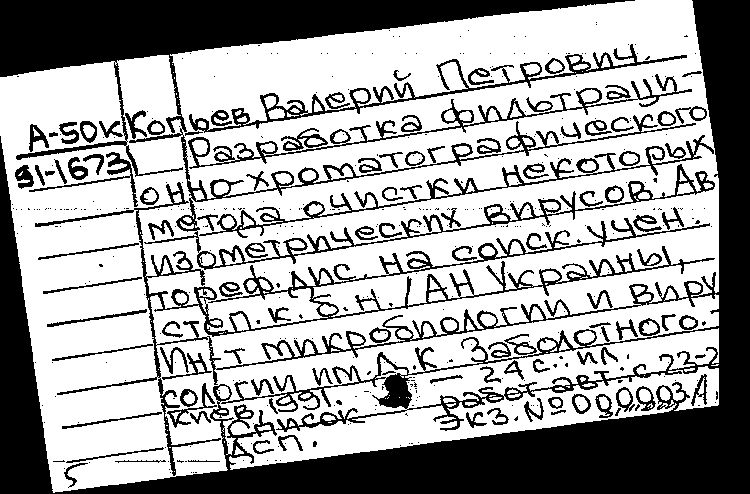 А-50к Копьев, Валерий Петрович.
91-1673 Разработка фильтраци-
онно-хроматографического
метода очистки некоторых
изометрических вирусов: Ав-
тореф. дис. на соиск. учен.
степ. к. б. н. / АН Украины,
Ин-т микробиологии и виру
сологии им. Д. К. Заболотного. -
Киев, 1991. — 24 с.: ил.
Список работ авт.: с 23-2
ДСП. Экз. № 000003